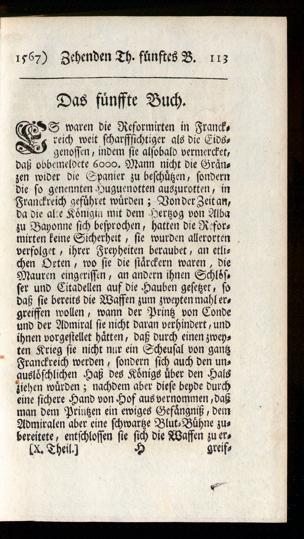 1567) Zehenden Th. fünftes B. 113
Das fünffte Buch.
ES waren die Reformirten in Franck-
reich weit scharffsichtiger als die Eids-
genossen, indem sie alsobald vermercket,
daß obbemeldete 6000. Mann nicht die Grän-
zen wider die Spanier zu beschützen, sondern
die so genennten Huguenotten auszurotten, in
Franckreich geführet würden; Von der Zeit an,
da die alte Königin mit dem Herzog von Alba
zu Bayonne sich besprochen, hatten die Refor-
mirten keine Sicherheit, sie wurden allerorten
verfolget, ihrer Freyheiten beraubet, an etli-
chen Orten, wo sie die stärckern waren, die
Mauren eingerissen, an andern ihnen Schlös-
ser und Citadellen auf die Hauben gesetzet, so
daß sie bereits die Waffen zum zweyten mahl er-
greiffen wollen, wann der Printz von Conde
und der Admiral sie nicht daran verhindert, und
ihnen vorgestellet hätten, daß durch einen zwey-
ten Krieg sie nicht nur ein Scheusal von gantz
Franckreich werden, sondern sich auch den un-
auslöschlichen Haß des Königs über den Hals
ziehen würden; nachdem aber diese beyde durch
eine sichere Hand von Hof aus vernommen, daß
man dem Printzen ein ewiges Gefängniß, dem
Admiralen aber eine schwartze Blut-Bühne zu-
bereitete, entschlossen sie sich die Waffen zu er-
[X. Theil.] H greif-